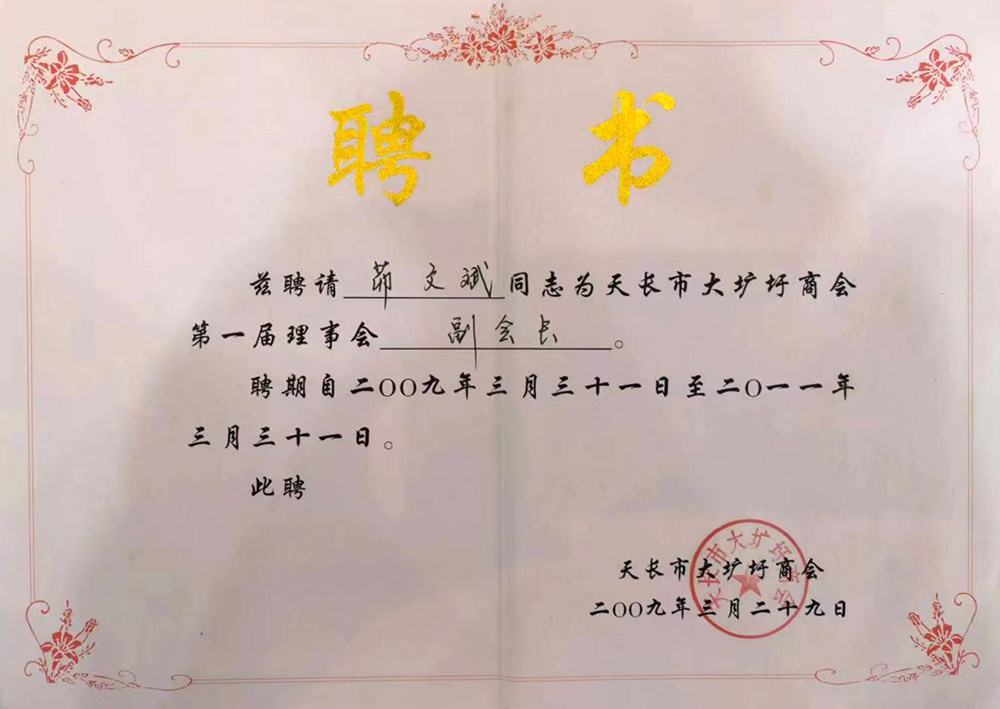 聘书
兹聘请茆文斌同志为天长市大圹圩商会
第一届理事会副会长。
聘期自二〇〇九年三月三十一日至二〇一一年
三月三十一日。
此聘
天长市大圹圩商会
天长市大圹圩商会
二〇〇九年三月二十九日